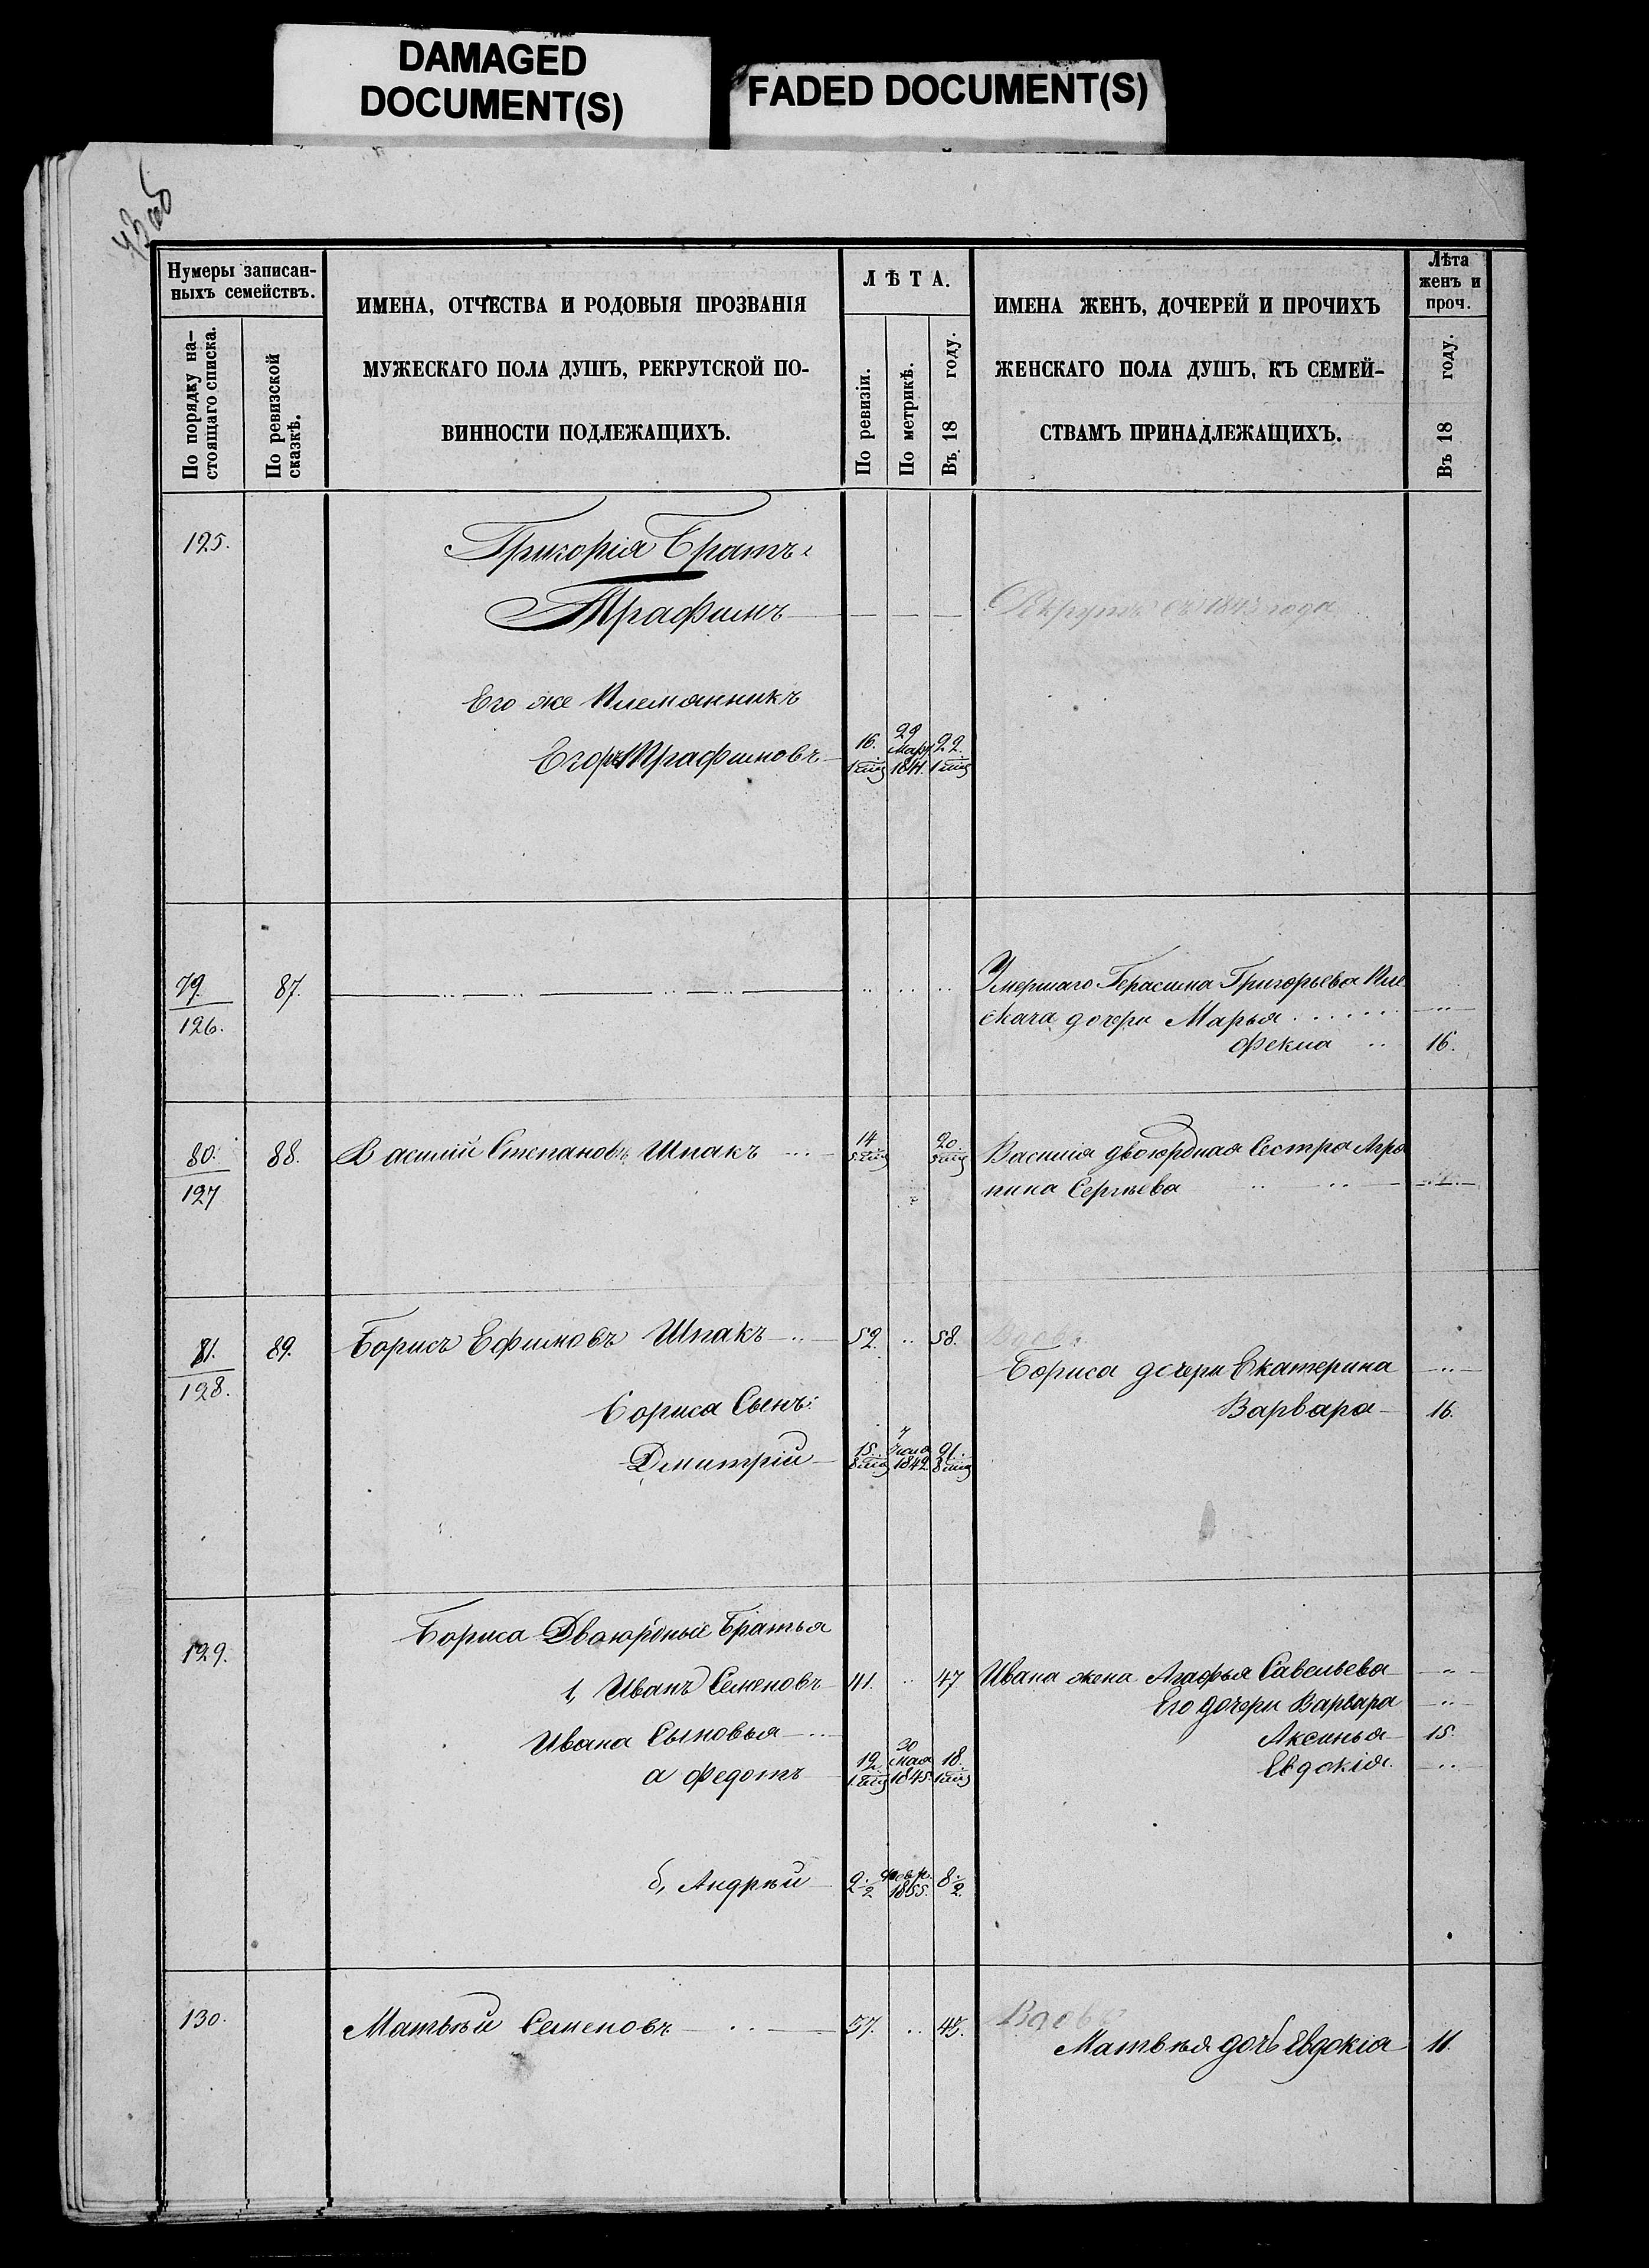 DAMAGED
DOCUMENT(S)
FADED DOCUMENT(S)
Нумеры записан-
ныхъ семействъ.
По порядку на-
стоящаго списка.
По ревизской
сказкѣ.
ИМЕНА, ОТЧЕСТВА И РОДОВЫЯ ПРОЗВАНІЯ
МУЖЕСКАГО ПОЛА ДУШЪ, РЕКРУТСКОЙ ПО-
ВИННОСТИ ПОДЛЕЖАЩИХЪ.
ЛѢТА.
По ревизіи.
По метрикѣ.
Въ 18 году.
ИМЕНА ЖЕНЪ, ДОЧЕРЕЙ И ПРОЧИХЪ
ЖЕНСКАГО ПОЛА ДУШЪ, КЪ СЕМЕЙ-
СТВАМЪ ПРИНАДЛЕЖАЩИХЪ.
Лѣта
женъ и
проч.
Въ 18 году.
125. Григорія Братъ
Трафимъ Рекрутъ съ 1843 года
Его же Племянникъ
Егоръ Трафимовъ 16. 29 Мар. 1841. 22.
79. 87. Умершаго Герасима Григорьева Пле
126. скача дочери Марья
Фекла 16.
80. 88. Василій Степановъ Шпакъ 14 20 Василія двоюродная Сестра Агра
127 пина Сергѣева
81. 89. Борисъ Ефимовъ Шпакъ 52. 58. Вдовъ
128. Бориса дочери Екатерина
Бориса Сынъ: Варвара 16.
Дмитрій 15. 1842 21.
129. Бориса Двоюродные Братья
1, Иванъ Семеновъ 41. 47 Ивана жена Агафья Савельева
Его дочери Варвара
Ивана Сыновья Аксинья 15.
а Федотъ 12. 30 мая 1845. 18. Евдокія.
б, Андрѣй 2 1/2 Февр. 1855. 8 1/2
130. Матвѣй Семеновъ 37. 43. Вдовъ
Матвѣя дочь Евдокія 11.